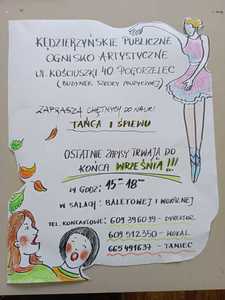 KĘDZIERZYŃSKIE PUBLICZNE
OGNISKO ARTYSTYCZNE
UL. KOŚCIUSZKI 40 POGORZELEC
(BUDYNEK SZKOŁY MUZYCZNEJ)
ZAPRASZA CHĘTNYCH DO NAUKI
TAŃCA I ŚPIEWU
OSTATNIE ZAPISY TRWAJĄ DO
KOŃCA WRZEŚNIA!!!
W GODZ: 15-18
W SALACH: BALETOWEJ I WOKALNEJ
TEL. KONTAKTOWE: 609 396039 - DYREKTOR
609 512350 - WOKAL
665 491637 - TANIEC